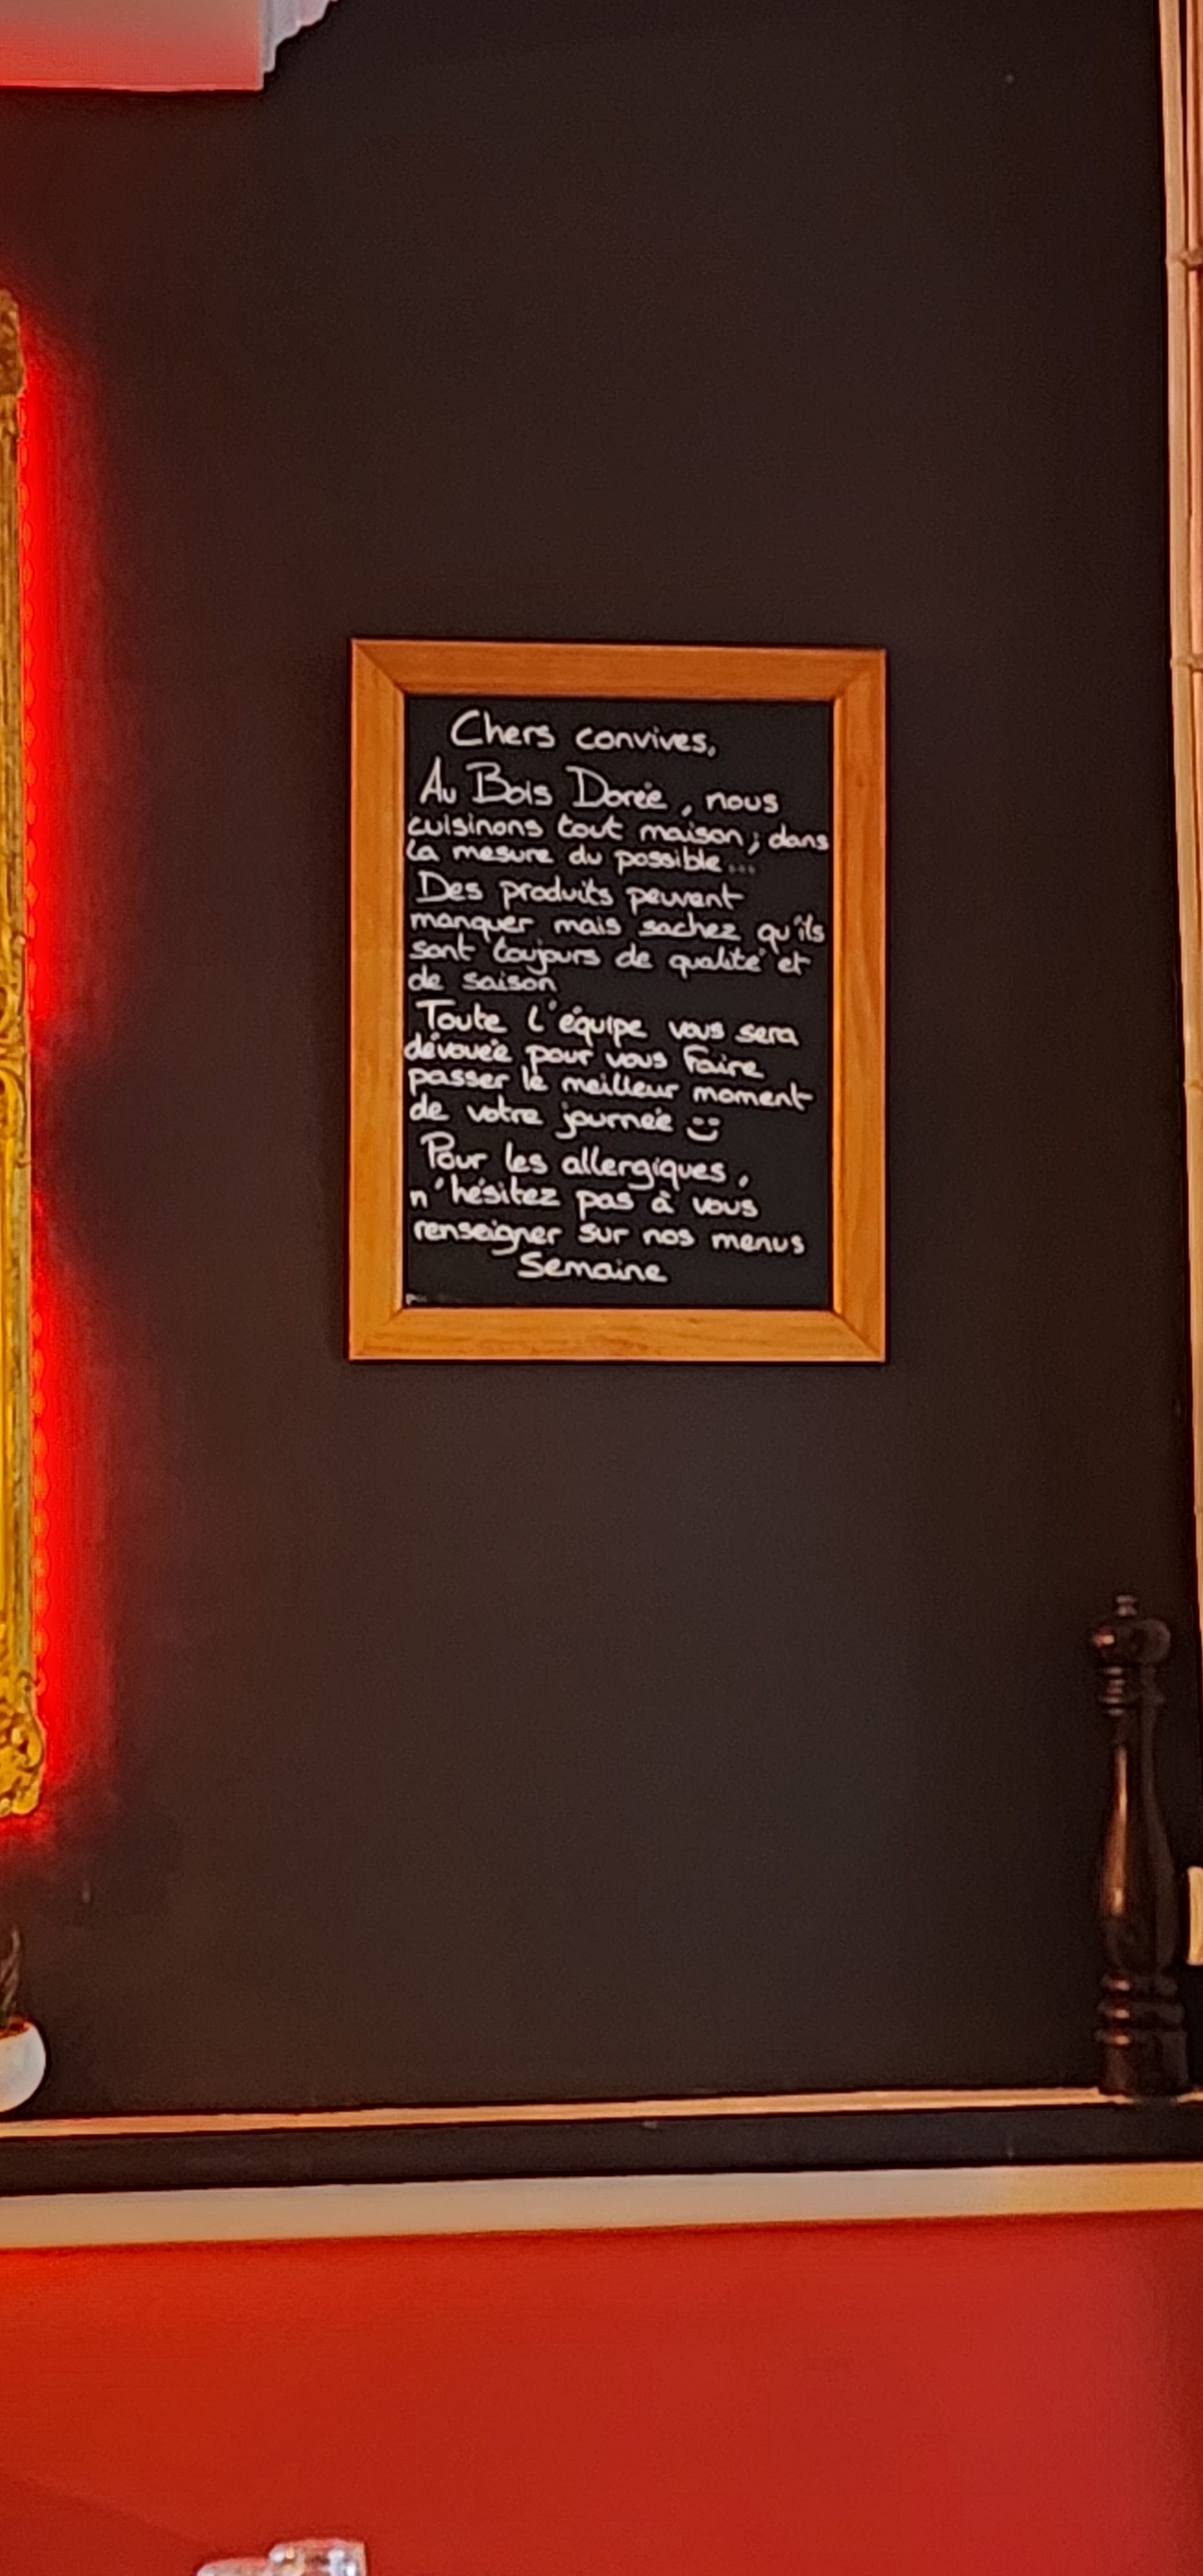 Chers convives,
Au Bois Dorée, nous
cuisinons tout maison; dans
la mesure du possible...
Des produits peuvent
manquer mais sachez qu'ils
sont toujours de qualité et
de saison
Toute l'équipe vous sera
dévouée pour vous faire
passer le meilleur moment
de votre journée
Pour les allergiques,
n'hésitez pas à vous
renseigner sur nos menus
Semaine